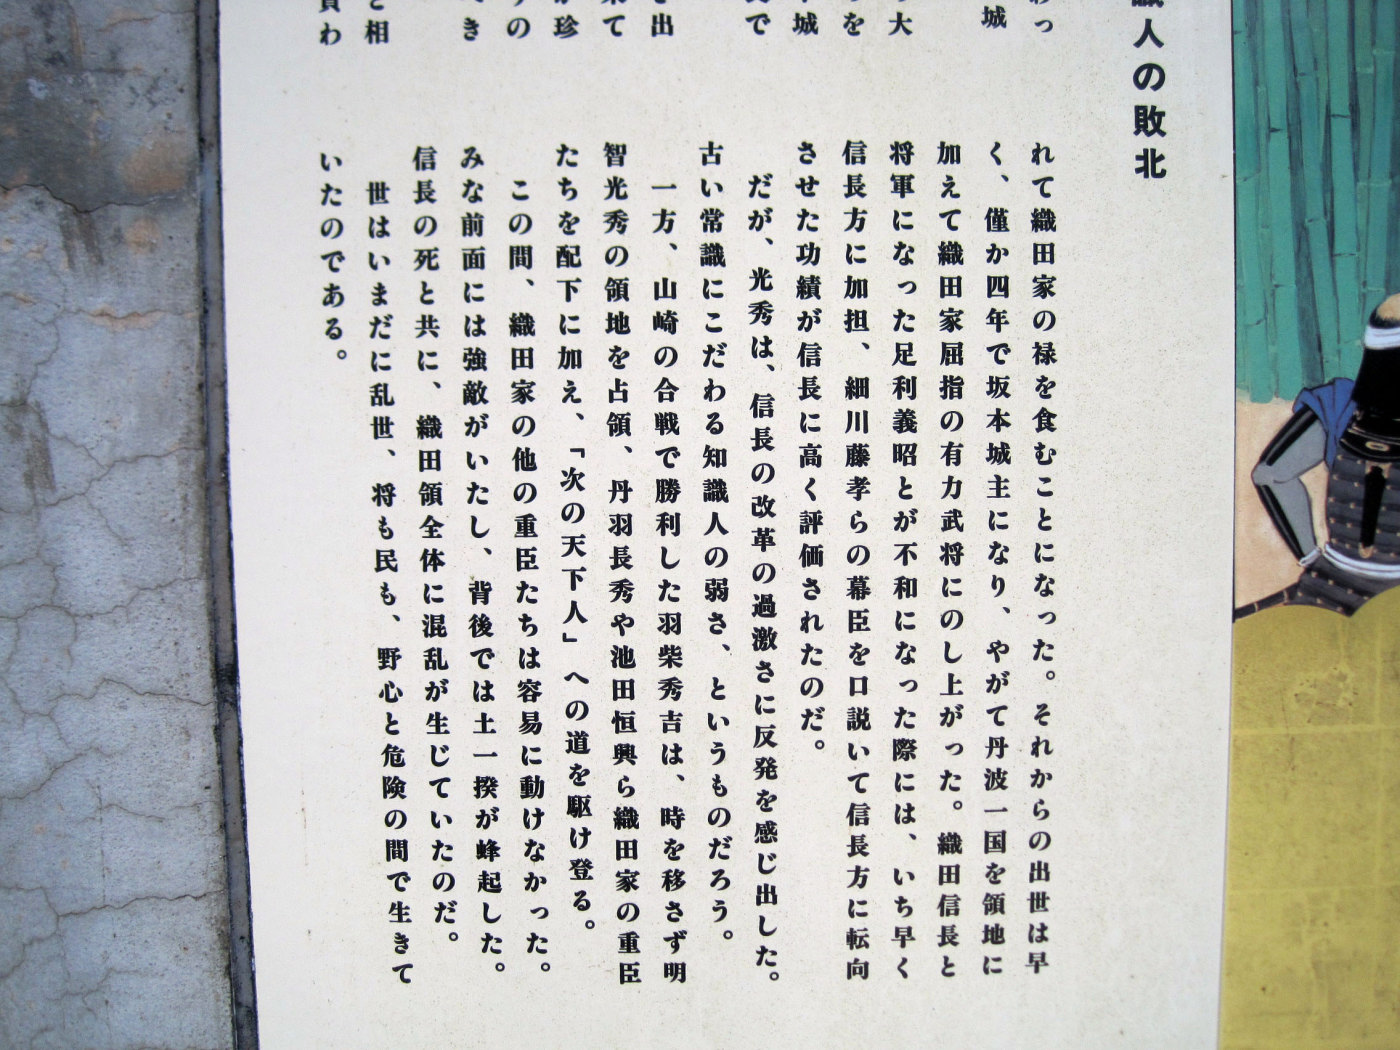 識人の敗北
わっ
城
の大
を
城
で
出
て
珍
の
き
相
買わ
れて織田家の禄を食むことになった。それからの出世は早
く、僅か四年で坂本城主になり、やがて丹波一国を領地に
加えて織田家屈指の有力武将にのし上がった。織田信長と
将軍になった足利義昭とが不和になった際には、いち早く
信長方に加担、細川藤孝らの幕臣を口説いて信長方に転向
させた功績が信長に高く評価されたのだ。
だが、光秀は、信長の改革の過激さに反発を感じ出した。
古い常識にこだわる知識人の弱さ、というものだろう。
一方、山崎の合戦で勝利した羽柴秀吉は、時を移さず明
智光秀の領地を占領、丹羽長秀や池田恒興ら織田家の重臣
たちを配下に加え、「次の天下人」への道を駆け登る。
この間、織田家の他の重臣たちは容易に動けなかった。
みな前面には強敵がいたし、背後では土一揆が蜂起した。
信長の死と共に、織田領全体に混乱が生じていたのだ。
世はいまだに乱世、将も民も、野心と危険の間で生きて
いたのである。